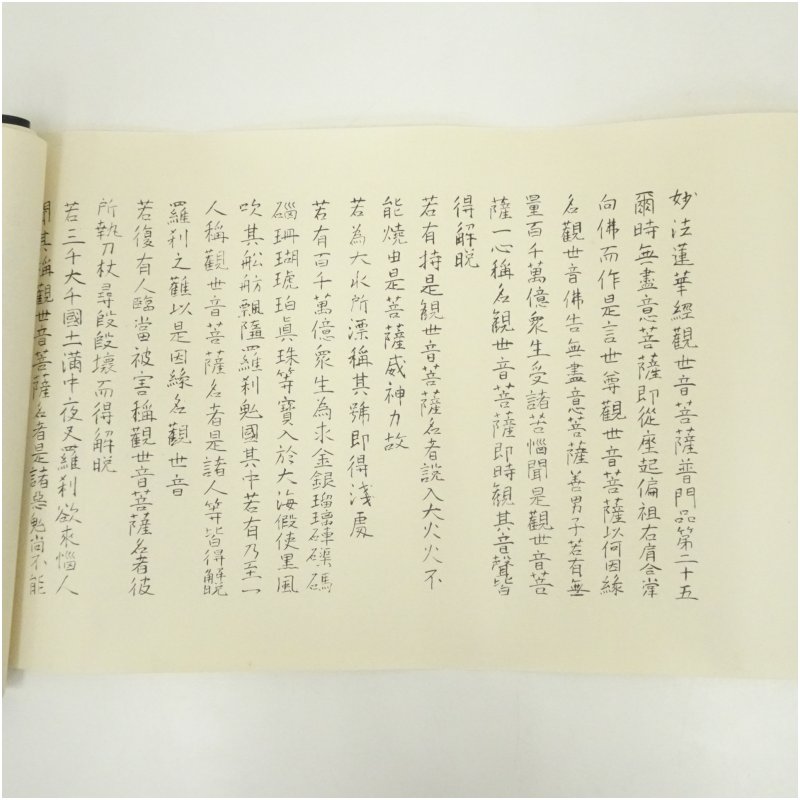 妙法蓮華經觀世音菩薩普門品第二十五
爾時無盡意菩薩即從座起偏袒右肩合掌
向佛而作是言世尊觀世音菩薩以何因緣
名觀世音佛告無盡意菩薩善男子若有無
量百千萬億眾生受諸苦惱聞是觀世音菩
薩一心稱名觀世音菩薩即時觀其音聲皆
得解脱
若有持是觀世音菩薩名者設入大火火不
能燒由是菩薩威神力故
若為大水所漂稱其號即得淺處
若有百千萬億眾生為求金銀瑠璃硨磲碼
碯珊瑚琥珀眞珠等寶入於大海假使黒風
吹其舩舫飄墮羅刹鬼國其中若有乃至一
人稱觀世音菩薩名者是諸人等皆得解脱
羅刹之難以是因緣名觀世音
若復有人臨當被害稱觀世音菩薩名者彼
所執刀杖尋段段壞而得解脱
若三千大千國土滿中夜叉羅刹欲來惱人
聞其稱觀世音菩薩名者是諸惡鬼尚不能